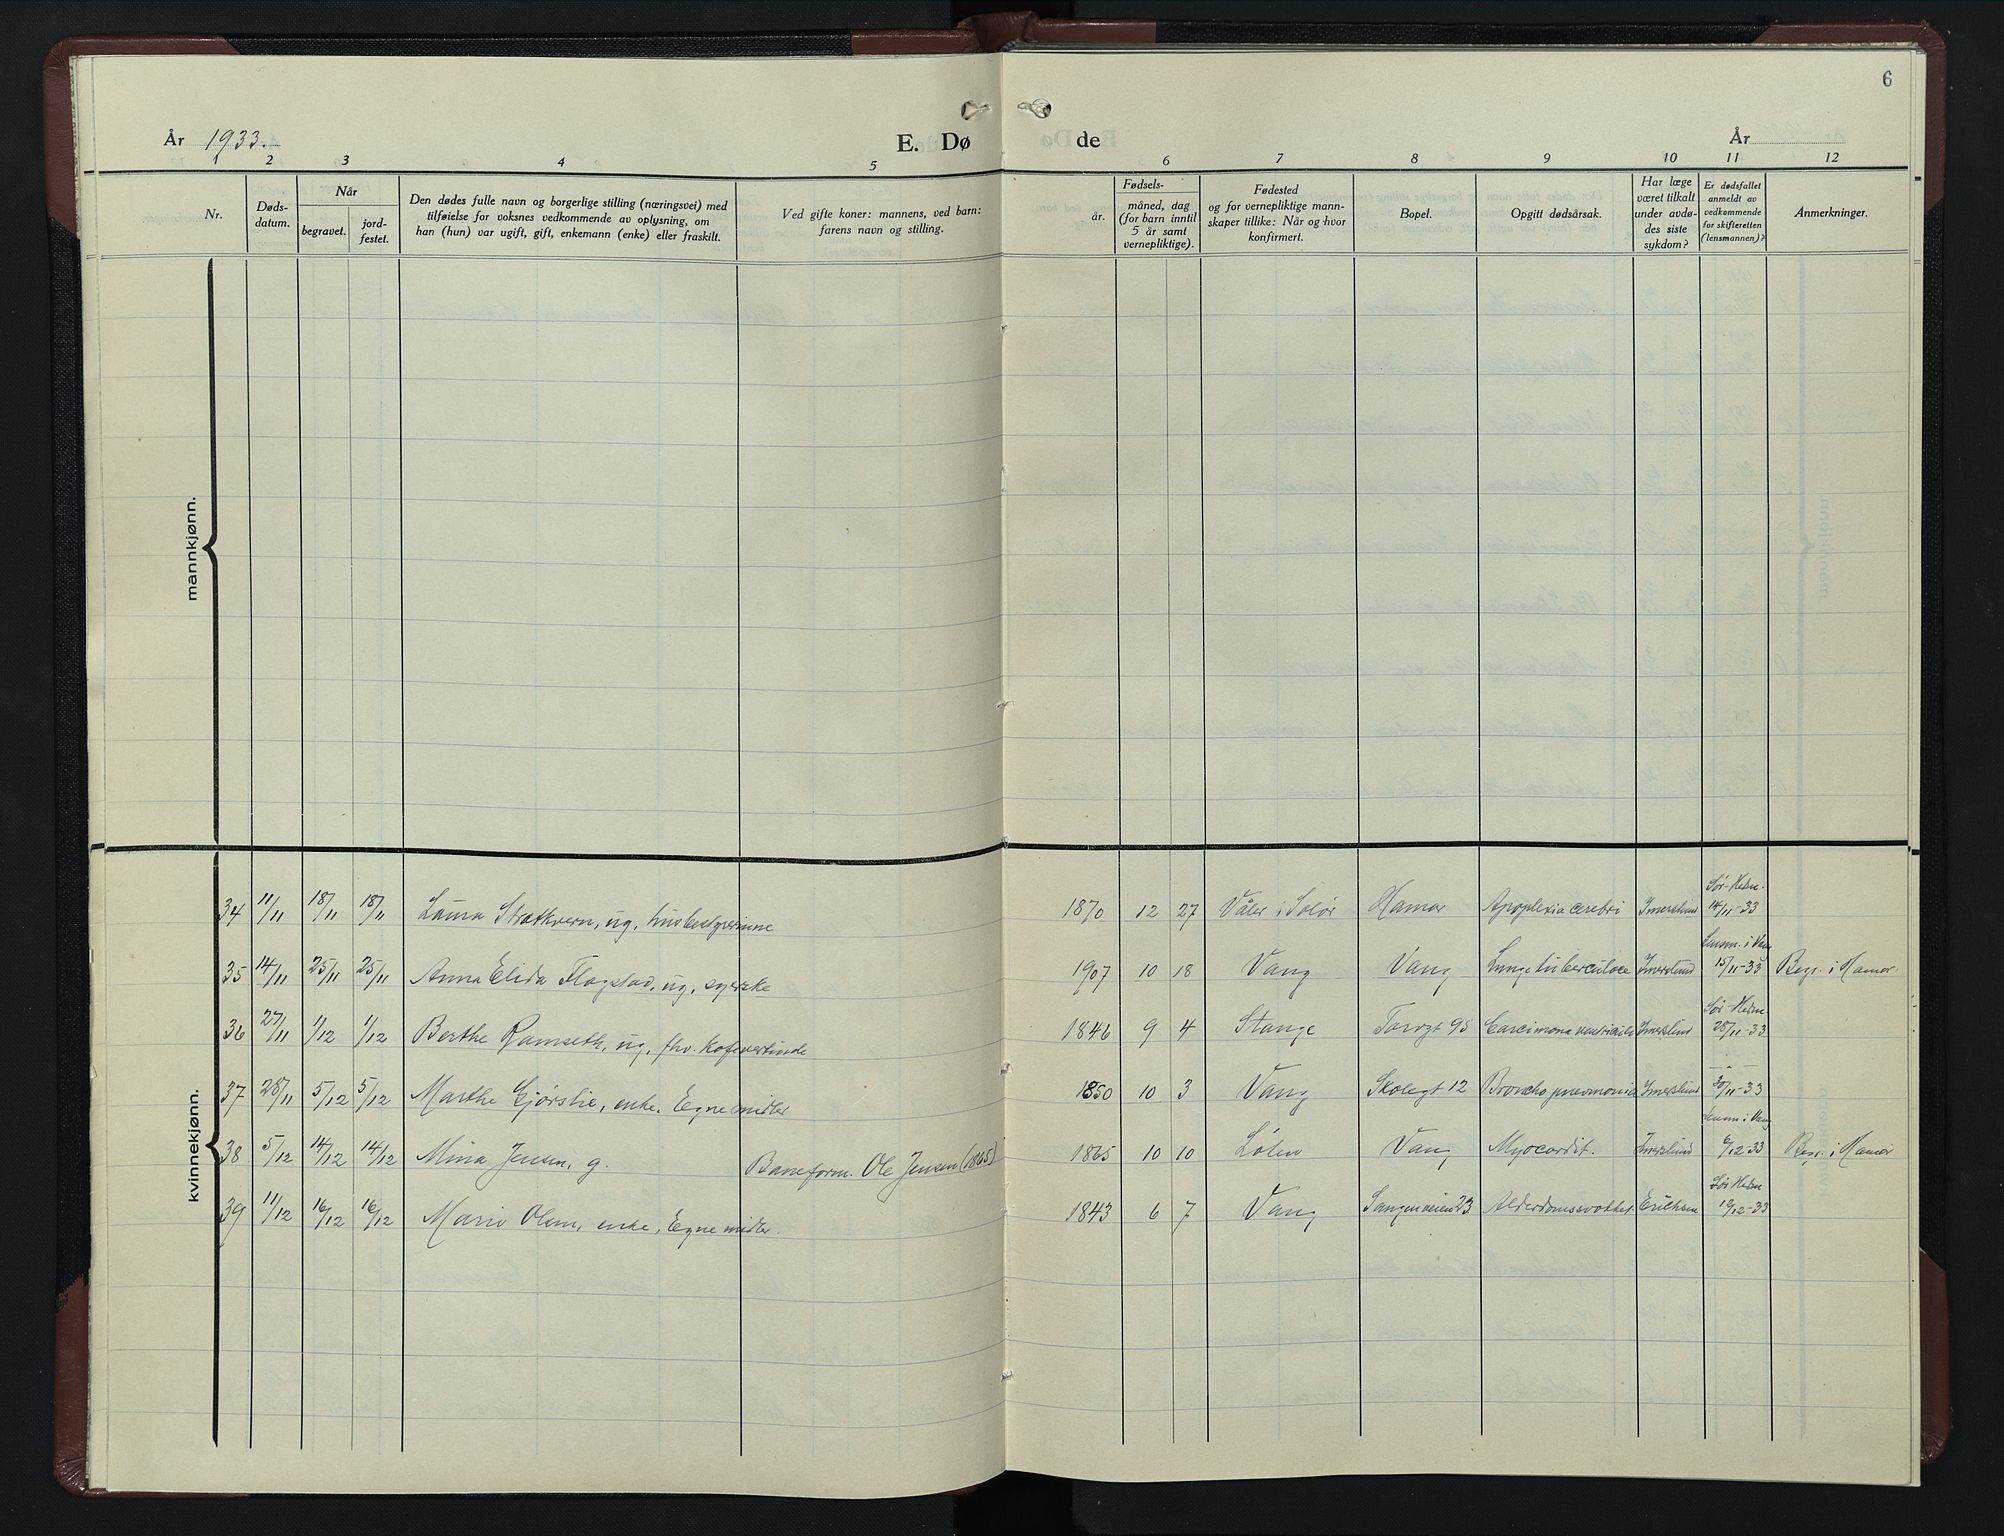 6
År 1933.
E. Dø de
År
1 2 3 4 5 6 7 8 9 10 11 12
Nr.
Døds-
datum.
Når
begravet.
jord-
festet.
Den dødes fulle navn og borgerlige stilling (næringsvei) med
tilføielse for voksnes vedkommende av oplysning, om
han (hun) var ugift, gift, enkemann (enke) eller fraskilt.
Ved gifte koner: mannens, ved barn:
farens navn og stilling.
Fødsels-
år.
måned, dag
(for barn inntil
5 år samt
vernepliktige).
Fødested
og for vernepliktige mann-
skaper tillike: Når og hvor
konfirmert.
Bopel.
Opgitt dødsårsak.
Har læge
været tilkalt
under avdø-
des siste
sykdom?
Er dødsfallet
anmeldt av
vedkommende
for skifteretten
(lensmannen)?
Anmerkninger.
mannkjønn.
kvinnekjønn.
34 11/11 18/11 18/11 Laura Strætkvern, ug, husbestyrerinne 1870 12 27 Våler i Solør Hamar Apoplexia cerebri Imerslund Sør-Hedm. 14/11-33
35 14/11 25/11 25/11 Anna Elida Flagstad, ug, syerske 1907 10 18 Vang Vang Lungetuberculose Imerslund Lensm. i Vang 15/11-33 Begr. i Hamar.
36 27/11 1/12 1/12 Berthe Ramseth, ug, fhv. kafevertinde 1846 9 4 Stange Torvgt 95 Carcimona ventriculi Imerslund Sør-Hedm 28/11-33
37 28/11 5/12 5/12 Marthe Gjørslie, enke, Egne midler 1850 10 3 Vang Skolegt 12 Bronchopneomonie Imerslund -"- 30/11-33
38 5/12 14/12 14/12 Mina Jensen, g. Baneform. Ole Jensen (1865) 1865 10 10 Løten Vang Myocardit. Imerslund Lensm i Vang 6/12-33 Begr. i Hamar
39 11/12 16/12 16/12 Marie Olsen, enke, Egne midler. 1843 6 7 Vang Sangenveien 23 Alderdomssvakhet Erichsen Sør Hedm 12/12-33